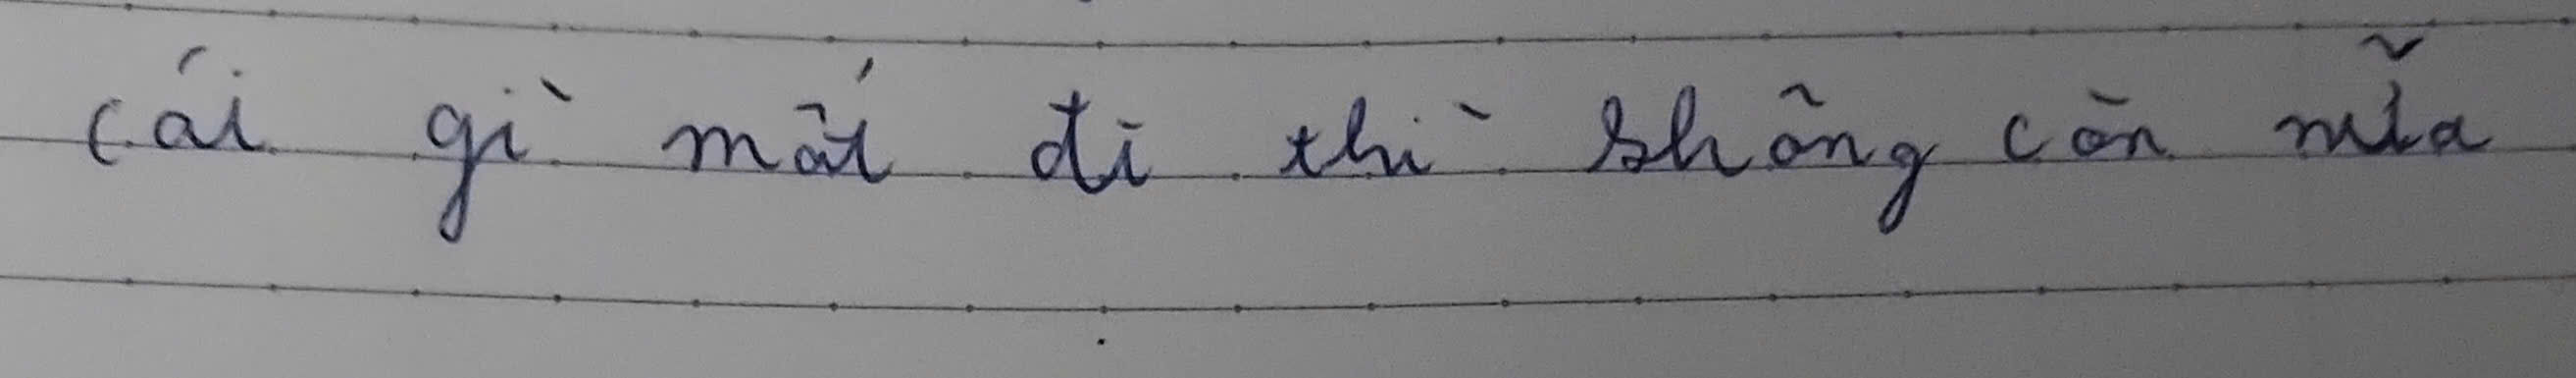 cái gì mất đi thì không còn nữa